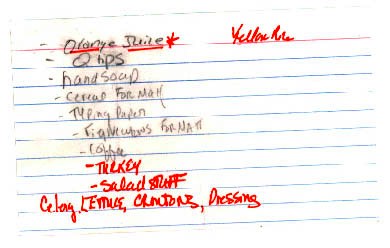 - Orange Juice *
- Q tips
- handsoap
- Cereal FOR MATT
- TYPing Paper
- Fig Newtons FOR MATT
- Coffee
- TURKEY
- Salad STUFF
Celery, LETTUCE, CROUTONS, Dressing
Yellow